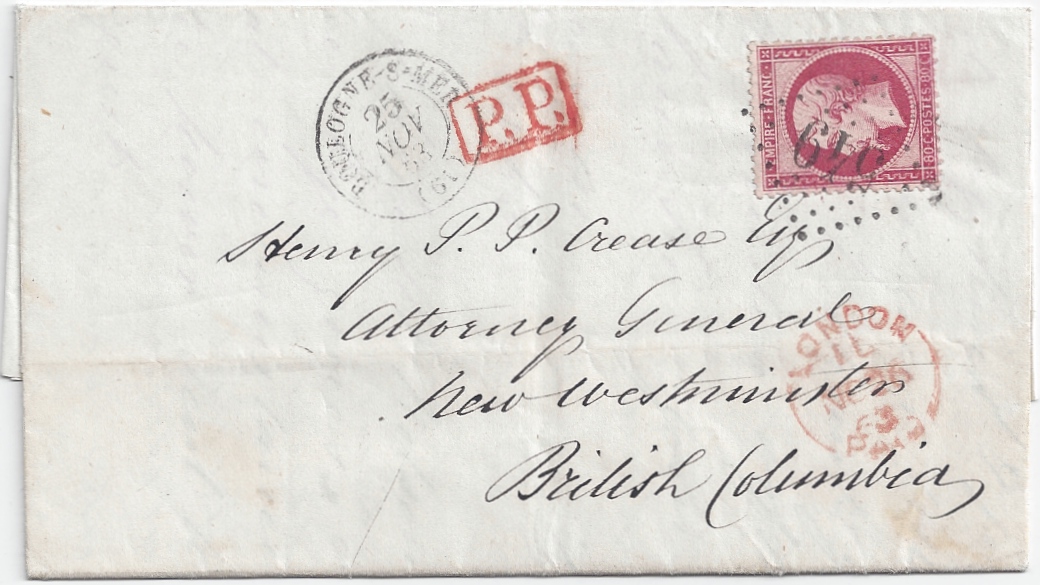 BOULOGNE-S-MER
25
NOV
63
(61)
P.P.
EMPIRE-FRANC
80 C·POSTES·80 C
549
Henry P. P. Crease Esq
Attorney General
New Westminster
British Columbia
LONDON
NO 26
63
PAID